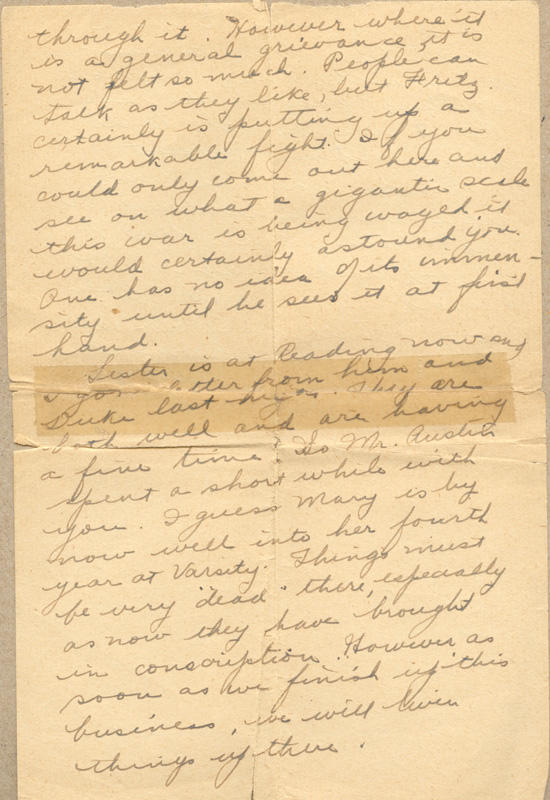 through it. However where it
is a general grievance, it is
not felt so much. People can
talk as they like, but Fritz.
certainly is putting up a
remarkable fight. If you
could only come out here and
see on what a gigantic scale
this war is being waged it
would certainly astound you.
One has no idea of its immen-
sity until he sees it at first
hand.
Lester is at Reading now and
I got letter from him and
Duke last night. They are
both well and are having
a fine time. So Mr. Austin
spent a short while with
you. I guess Mary is by
now well into her fourth
year at Varsity. Things must
be very "dead" there, especially
as now they have brought
in conscription. However as
soon as we finish up this
business, we will liven
things up there.